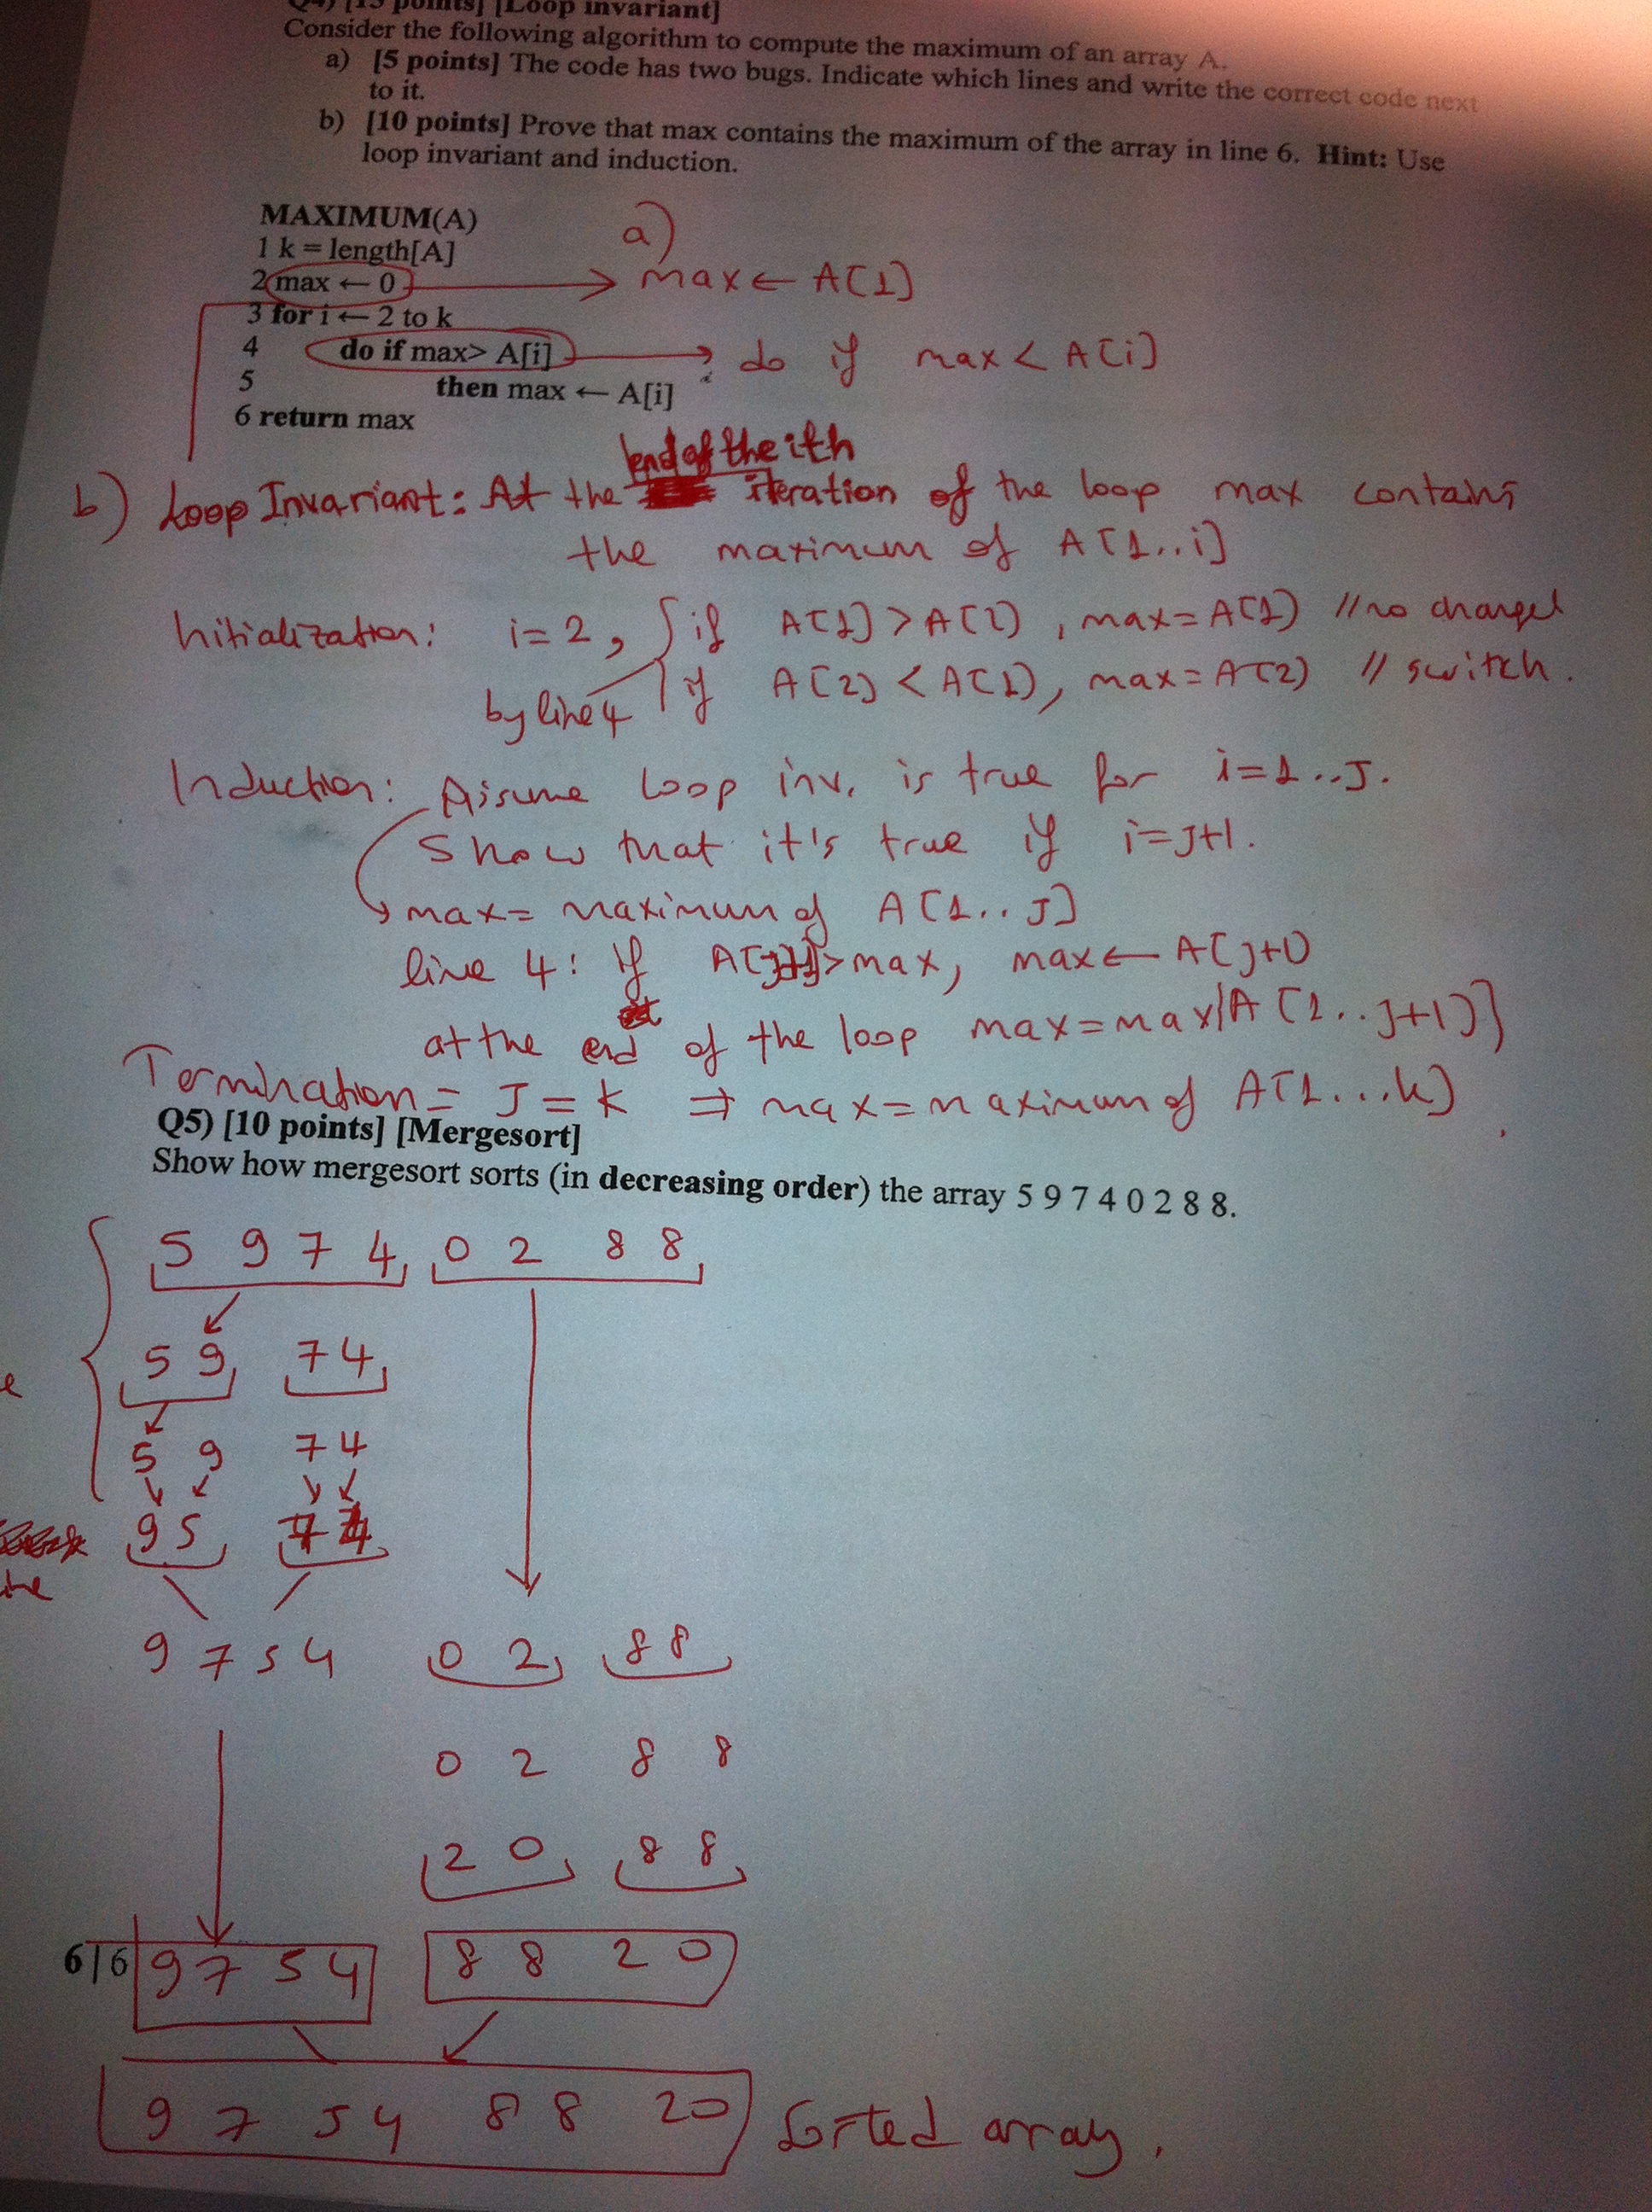 Q4) [15 points] [Loop invariant]
Consider the following algorithm to compute the maximum of an array A.
a) [5 points] The code has two bugs. Indicate which lines and write the correct code next
to it.
b) [10 points] Prove that max contains the maximum of the array in line 6. Hint: Use
loop invariant and induction.
MAXIMUM(A)
a)
1 k = length[A]
2 max ← 0 → max ← A[1]
3 for i ← 2 to k
4 do if max> A[i] → do if max < A[i]
5 then max ← A[i]
6 return max
end of the ith
b) Loop Invariant: At the iteration of the loop max contains
the maximum of A[1..i]
Initialization: i=2, if A[1] > A[2], max=A[1] // no change
by line 4 if A[2] < A[1], max=A[2] // switch.
Induction: Assume loop inv. is true for i=1..J.
Show that it's true if i=J+1.
→ max= maximum of A[1..J]
line 4: if A[j+1]>max, max ← A[j+1]
at the end of the loop max=max{A[1..j+1]}
Termination = J=k ⇒ max=maximum of A[1...k]
Q5) [10 points] [Mergesort]
Show how mergesort sorts (in decreasing order) the array 5 9 7 4 0 2 8 8.
5 9 7 4 0 2 8 8
5 9 7 4
5 9 7 4
9 5 7 4
9 7 5 4 0 2 8 8
0 2 8 8
2 0 8 8
6|6 9 7 5 4 8 8 2 0
9 7 5 4 8 8 2 0 Sorted array.